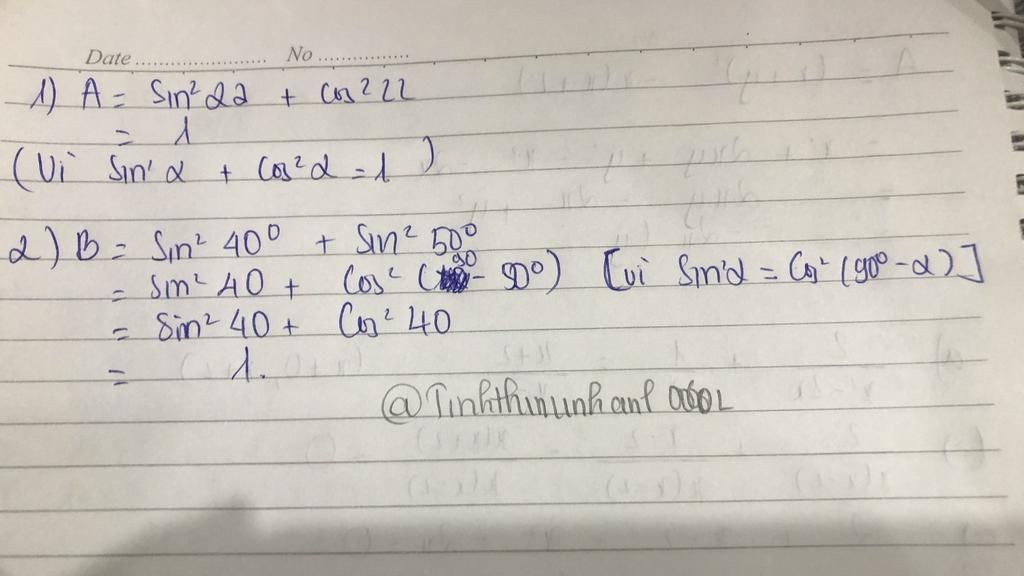 Date ........................ No .................
1) A = Sin² 22 + Cos² 22
= 1
(Vì Sin² α + Cos² α = 1)
2) B = Sin² 40° + Sin² 50°
= Sin² 40 + Cos² (90 - 50°) [vì Sin²α = Cos² (90° - α)]
= Sin² 40 + Cos² 40
= 1.